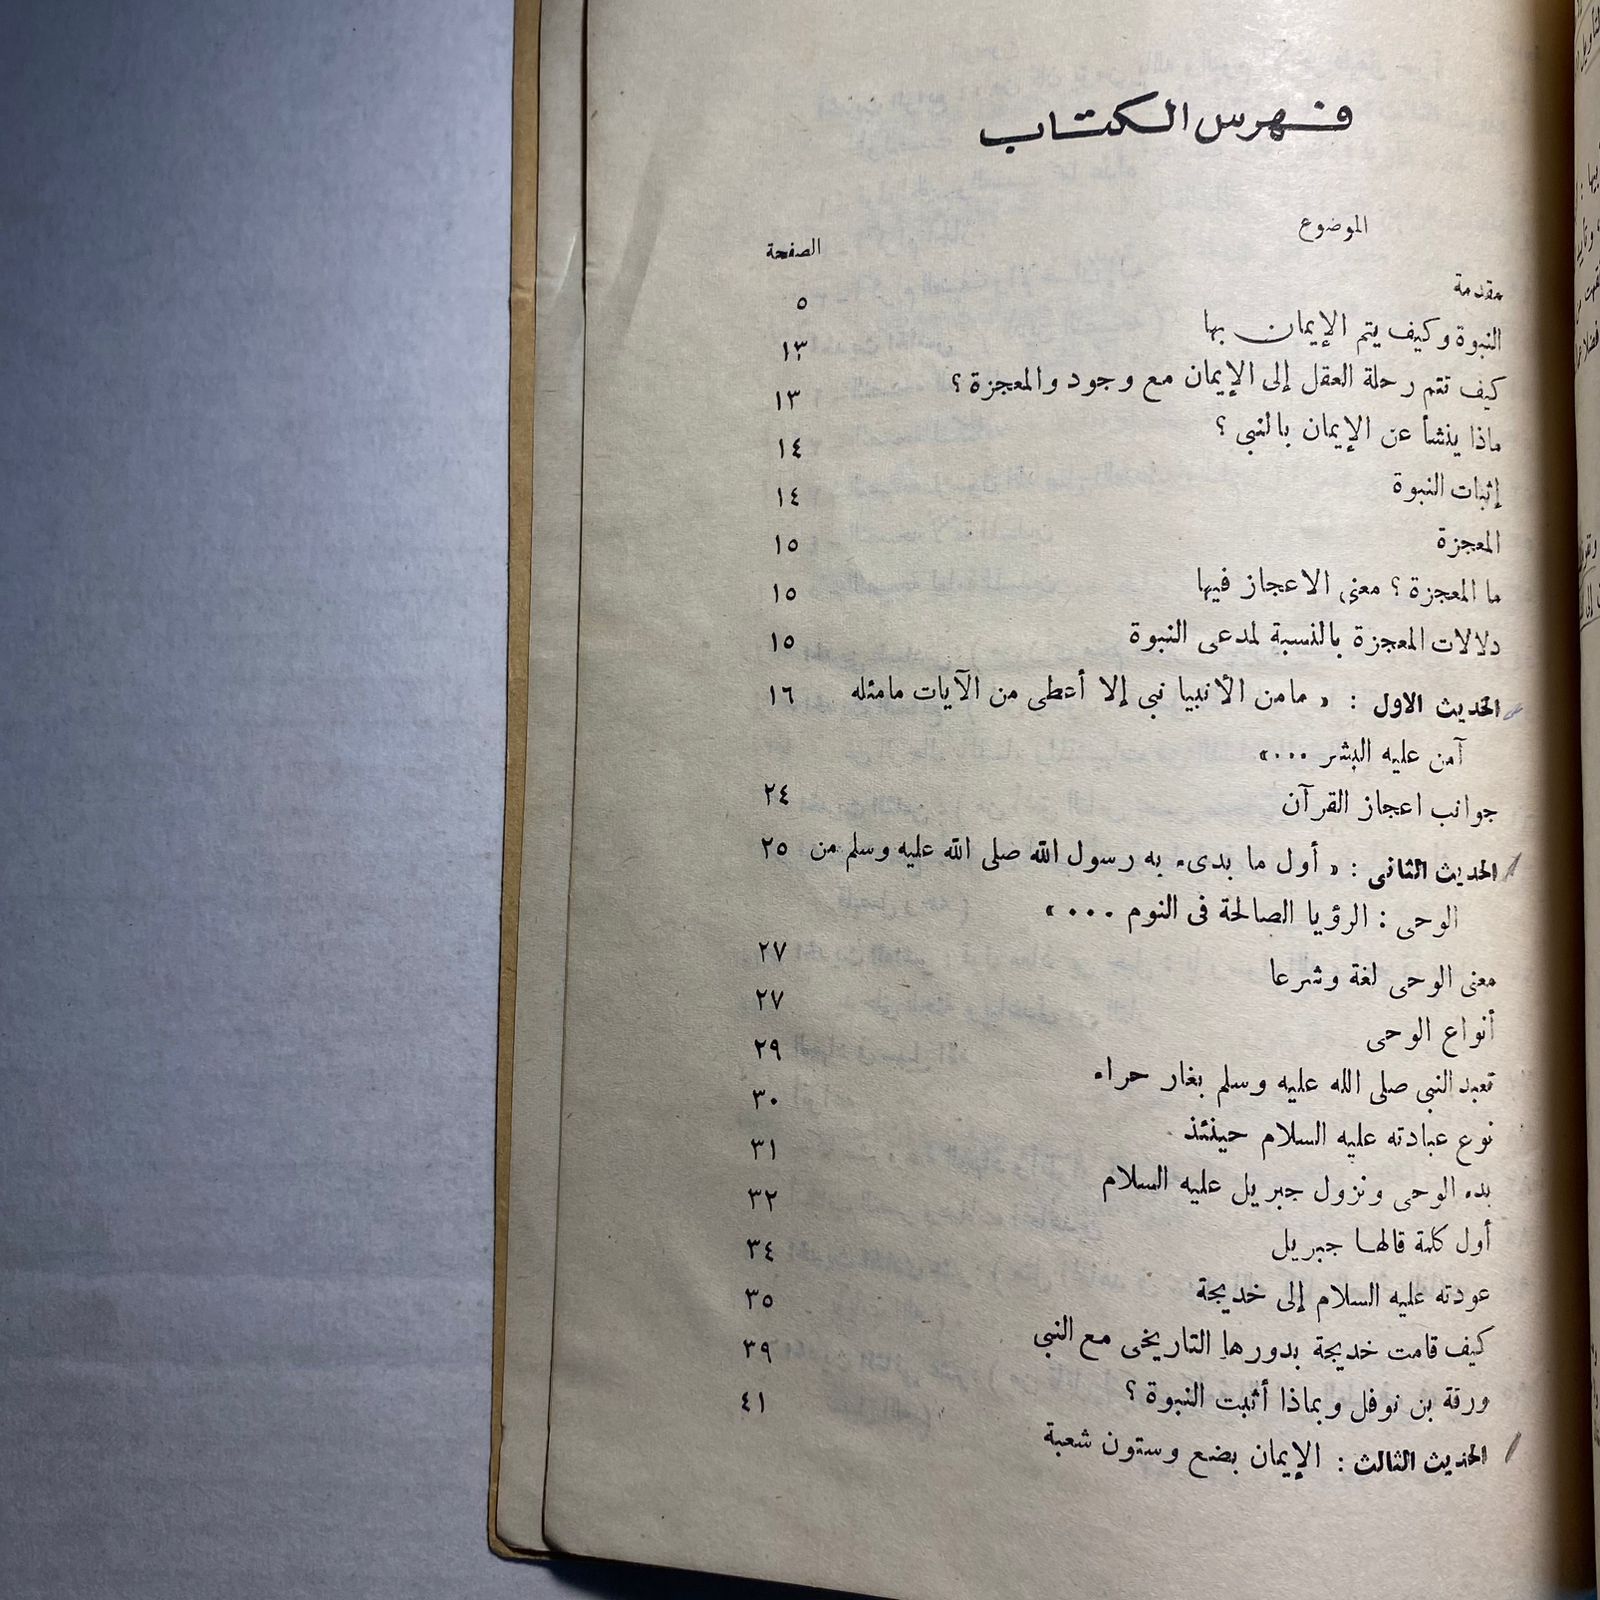 فهرس الكتاب
الموضوع الصفحة
مقدمة ٥
النبوة وكيف يتم الإيمان بها ١٣
كيف تتم رحلة العقل إلى الإيمان مع وجود والمعجزة ؟ ١٣
ماذا ينشأ عن الإيمان بالنبى ؟ ١٤
إثبات النبوة ١٤
المعجزة ١٥
ما المعجزة ؟ معنى الاعجاز فيها ١٥
دلالات المعجزة بالنسبة لمدعى النبوة ١٥
الحديث الاول : « مامن الأنبيا نبى إلا أعطى من الآيات مامثله ١٦
آمن عليه البشر ... »
جوانب اعجاز القرآن ٢٤
الحديث الثانى : « أول ما بدىء به رسول الله صلى الله عليه وسلم من ٢٥
الوحى : الرؤيا الصالحة فى النوم ... »
معنى الوحى لغة وشرعا ٢٧
أنواع الوحى ٢٧
تعبد النبى صلى الله عليه وسلم بغار حراء ٢٩
نوع عبادته عليه السلام حينئذ ٣٠
بدء الوحى ونزول جبريل عليه السلام ٣١
أول كلمة قالها جبريل ٣٢
عودته عليه السلام إلى خديجة ٣٤
كيف قامت خديجة بدورها التاريخى مع النبى ٣٥
ورقة بن نوفل وبماذا أثبت النبوة ؟ ٣٩
الحديث الثالث : الإيمان بضع وستون شعبة ٤١